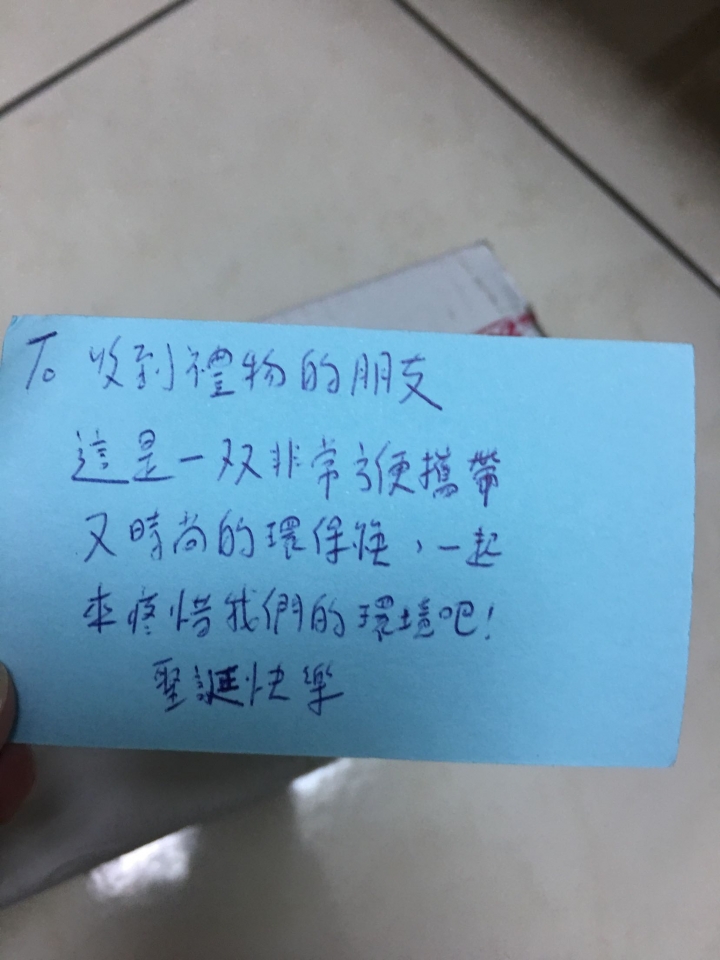 To 收到禮物的朋友
這是一双非常方便攜帶
又時尚的環保筷,一起
來疼惜我們的環境吧!
聖誕快樂